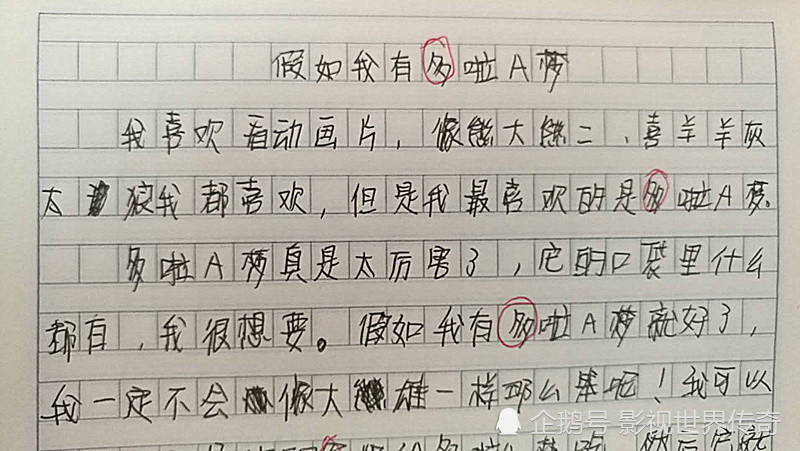 假如我有多啦A梦
我喜欢看动画片，像熊大熊二、喜羊羊灰
太狼我都喜欢，但是我最喜欢的是多啦A梦.
多啦A梦真是太厉害了，它的口袋里什么
都有，我很想要。假如我有多啦A梦就好了，
我一定不会像大雄一样那么笨呢！我可以
企鹅号 影视世界传奇